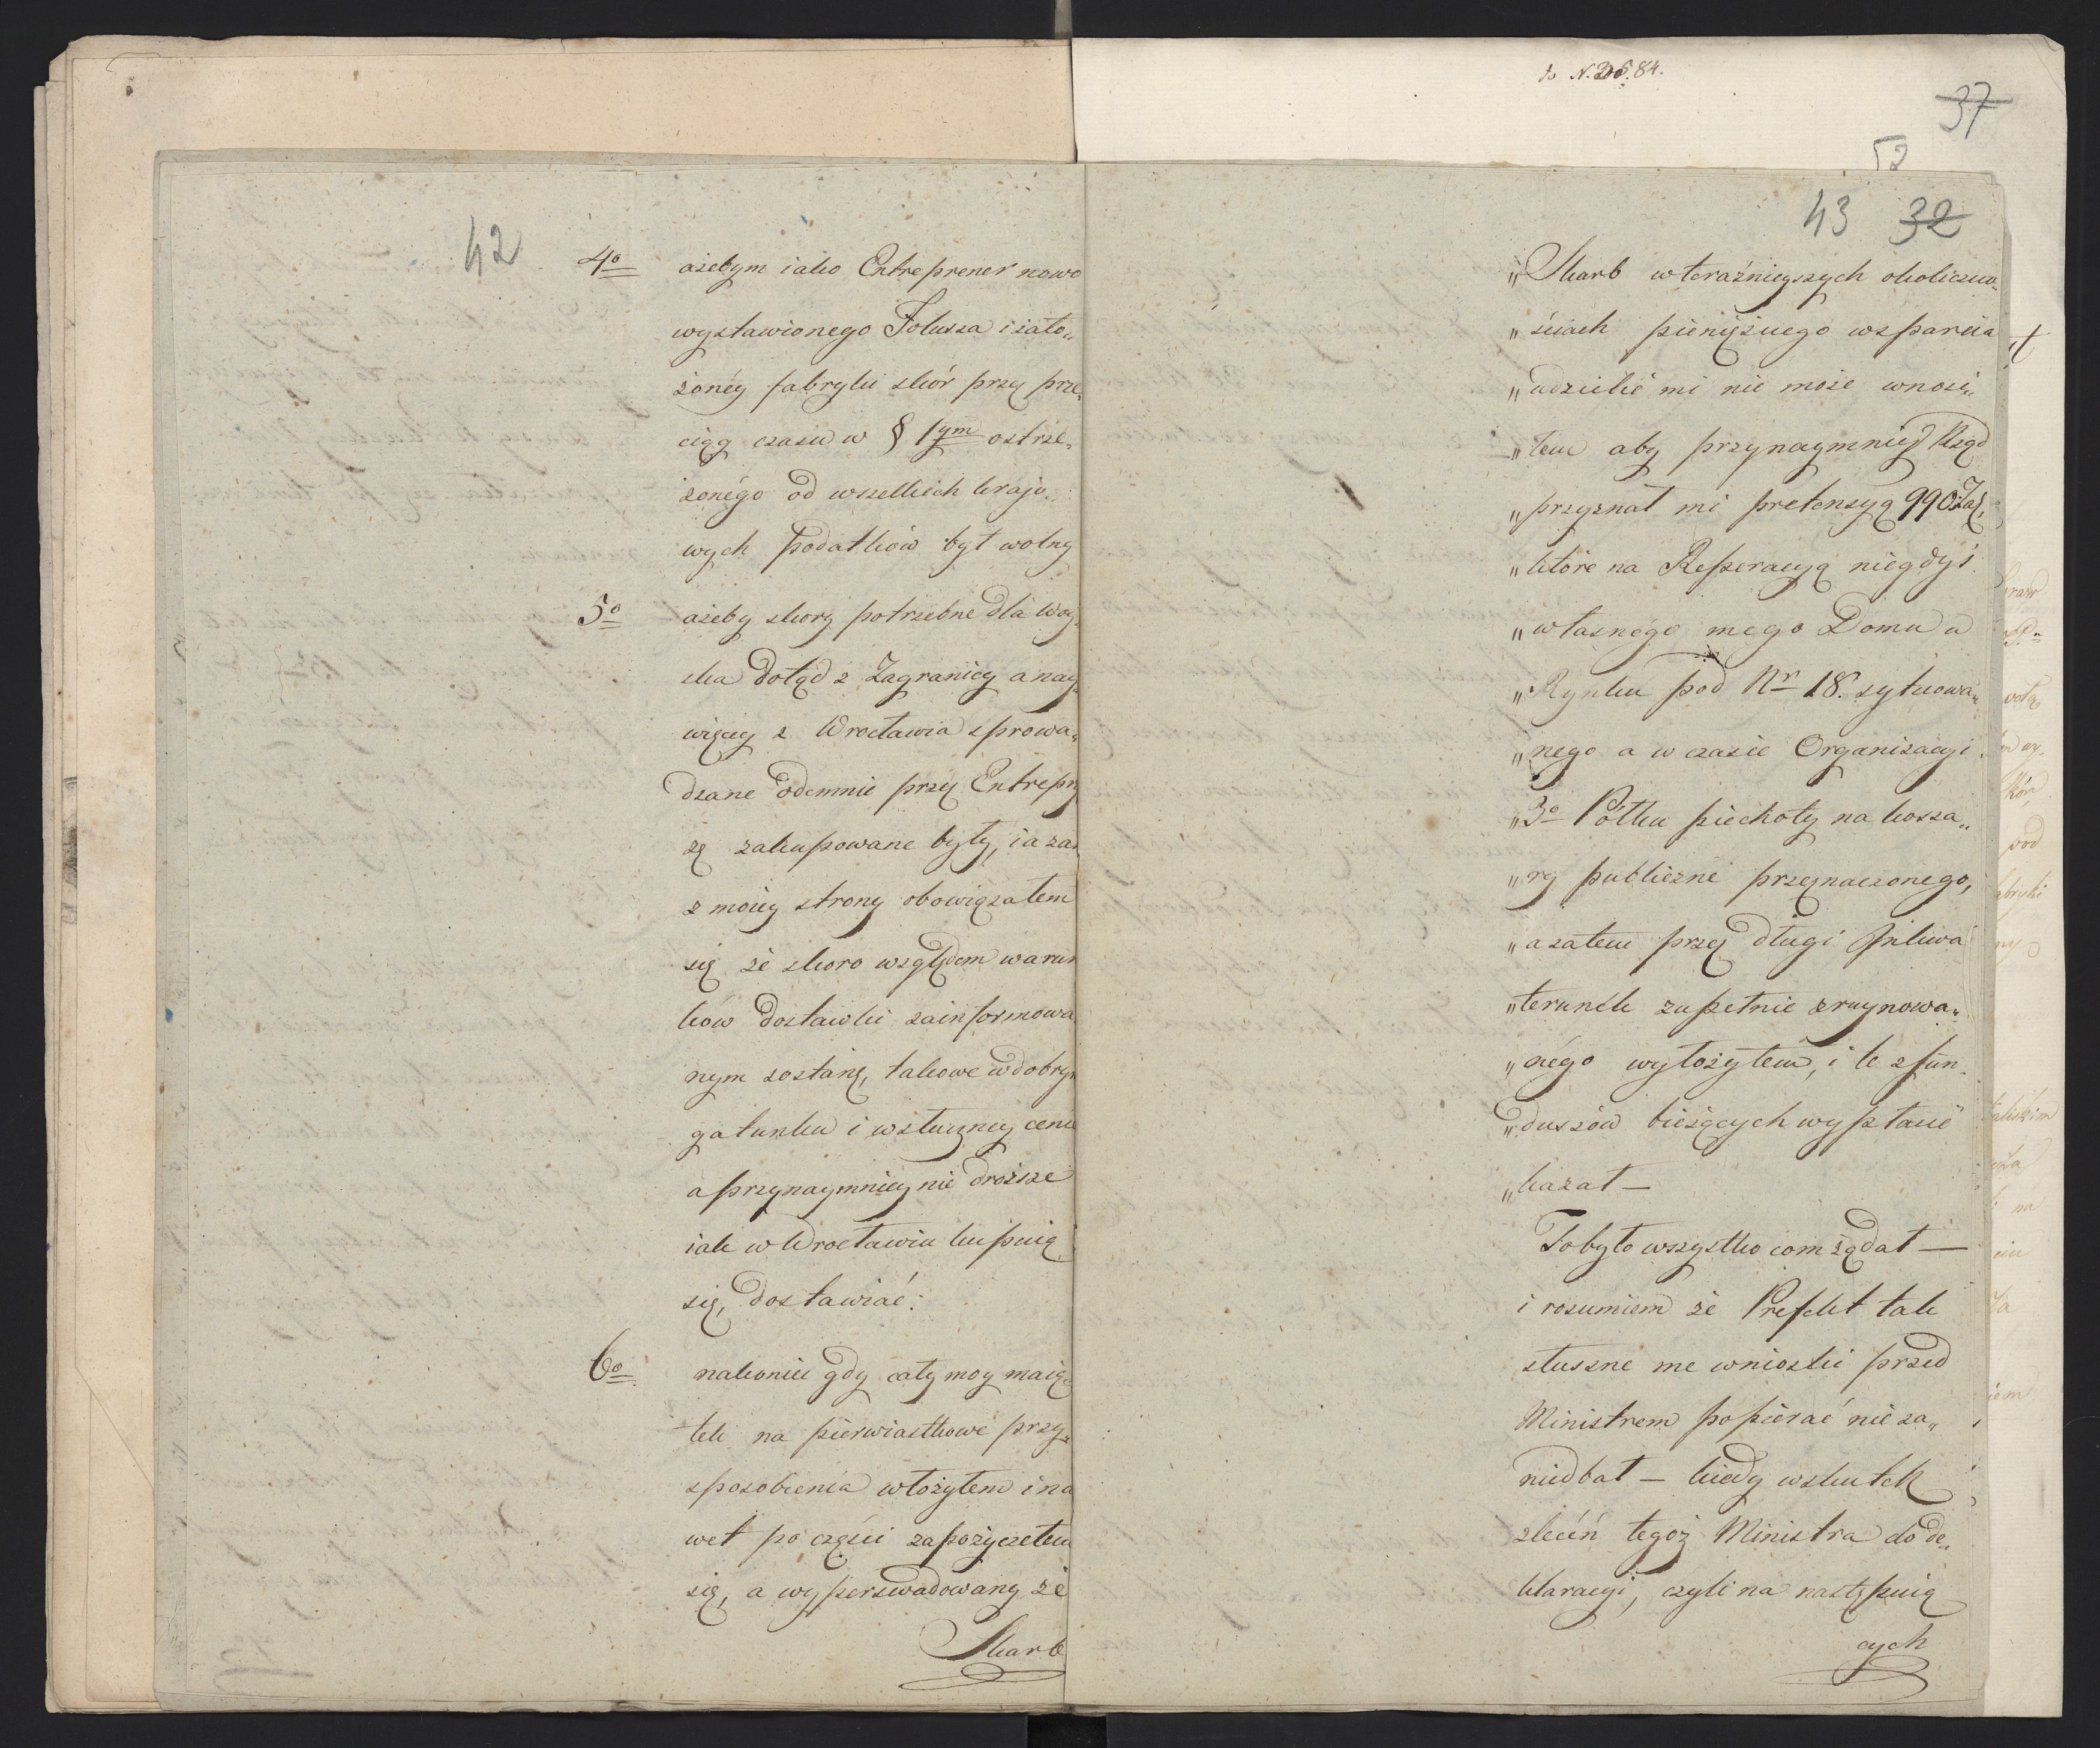 42
4o ażebym iako Entreprener nowo
wystawionego Folusza i zało„
żonéy fabryki skór przy prze„
ciąg czasu w § 1ym ostrze„
żonégo od wszelkich krajo„
wych podatków był wolny
5o ażeby skory potrzebne dla woy„
ska dotąd z Zagranicy a nay„
więcey z Wrocławia sprowa„
dzane odemnie przy Entrepry
zę zakupowane były, ia zaś
z moiey strony obowiązałem
się że skoro względem warun
ków dostawki zainformowa
nym zostanę, takowe w dobrym
gatunku i w słuszney cenie
a przynaymniey nie droższe
iak w Wrocławiu kupuią
się, dostawiać:
6o nakoniec gdy cały moy maią
tek na pierwiastkowe przy„
sposobienia włożyłem i na
wet po części zapożyczełem
się, a wyperswadowany że
Skarb
to N. 84.
37
52
43 32
„Skarb w teraźnieyszych okoliczno„
„ściach pieniężnego wsparcia
„udzielić mi nie może wnosi„
„łem aby przynaymniey Rząd
„przyznał mi pretensyą 990
„które na Reperacyą niegdyś
„własnégo mego Domu w
„Rynku pod Nr 18. sytuowa„
„nego a w czasie Organizacyi
„3o Półku piechoty na kosza„
„ry publicznie przeznaczonego,
„a zatem przez długi Inkwa
„terunek zupełnie zruynowa„
„négo wyłożyłem, i te z fun„
„duszów bieżących wypłacić
„kazał —
To było wszystko com żądał —
i rozumiem że Prefekt tak
słuszne me wnioski przed
Ministrem popierać nie za„
niedbał — kiedy w skutek
zleceń tegoż Ministra do de„
klaracyi, czyli na następuią
cych